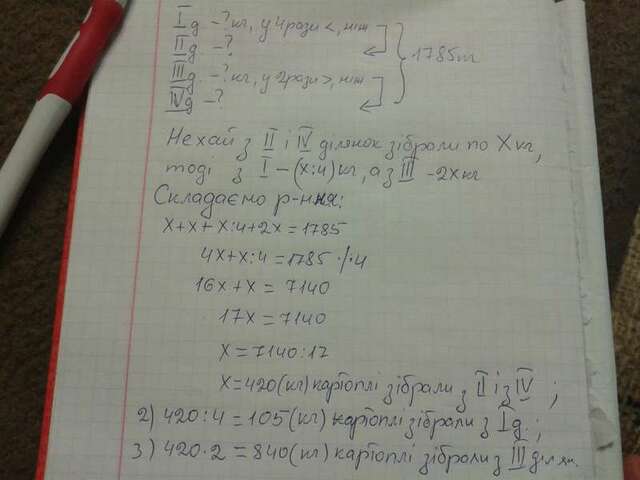 I д -? кг, у 4 рази <, ніж
II д. -?
1785 кг
III д. -? кг, у 2 рази >, ніж
IV д -?
Нехай з II і IV ділянок зібрали по X кг,
тоді з I - (x:4) кг, а з III - 2x кг
Складаємо р-ння:
x+x+x:4+2x=1785
4x+x:4=1785 /·4
16x+x = 7140
17x=7140
x=7140:17
x=420(кг) картоплі зібрали з II і з IV ;
2) 420:4=105(кг) картоплі зібрали з I д.;
3) 420·2=840(кг) картоплі зібрали з III ділян.